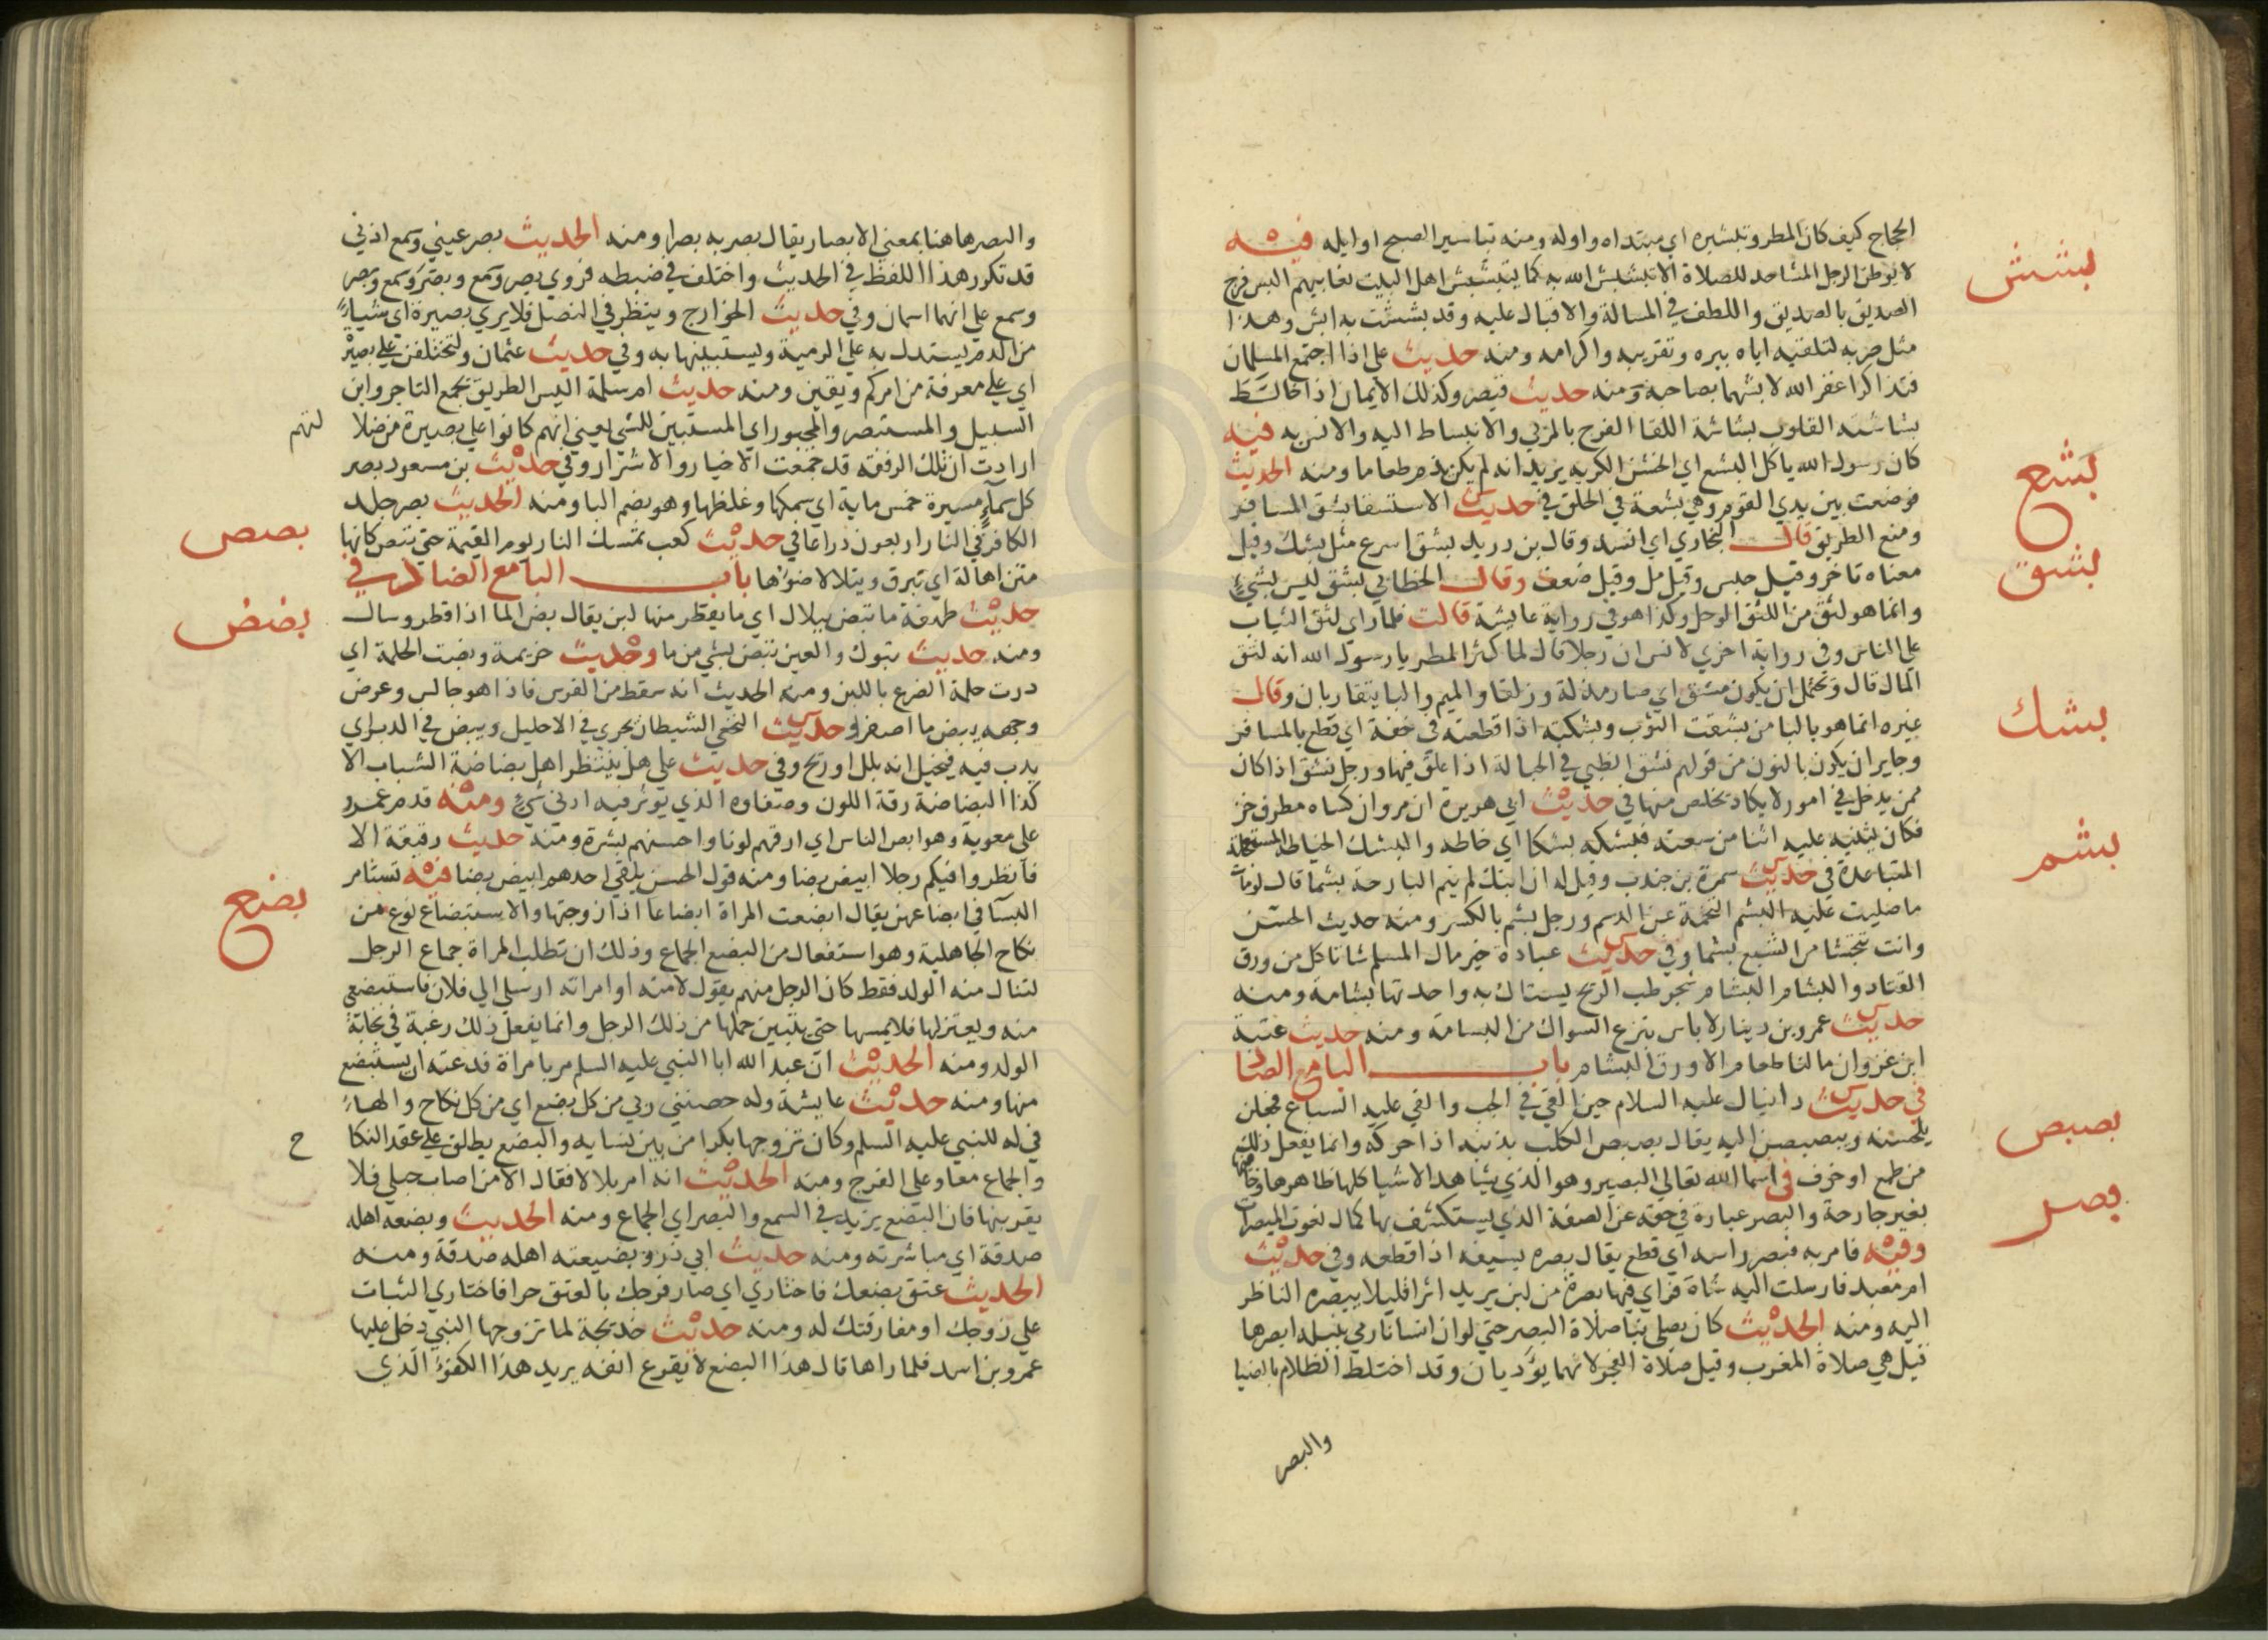 الحجاج كيف كان المطر وتبشيره اي مبتداه واوله ومنه تباشير الصبح اوايله فيه
بشش
لا يوطن الرجل المساجد للصلاة الا تبشبش الله به كما يتبشبش اهل البيت بغايبهم البش فرح
الصديق بالصديق واللطف في المسالة والاقبال عليه وقد بششت به ابش وهذا
مثل ضربه لتلقيه اياه ببره وتقريبه واكرامه ومنه حديث علي اذا اجتمع المسلمان
فتذاكرا غفر الله لا بشهما بصاحبه ومنه حديث قيصر وكذلك الايمان اذا خالط
بشاشته القلوب بشاشة اللقا الفرح بالمرئي والانبساط اليه والانس به فيه
بشع
كان رسول الله ياكل البشع اي الخشن الكريه يريد انه لم يكن يذم طعاما ومنه الحديث
فوضعت بين يدي القوم وهي بشعة في الحلق في حديث الاستسقا بشق المسافر
ومنع الطريق قال البخاري اي انسد وقال بن دريد بشق اسرع مثل بشك وقيل
بشق
معناه تاخر وقيل حبس وقيل مل وقيل ضعف وقال الخطابي بشق ليس بشيء
وانما هو لثق من اللثق الوحل وكذا هو في رواية عايشة قالت فلما راي لثق الثياب
علي الناس وفي رواية اخري لانس ان رجلا قال لما كثر المطر يا رسول الله انه لثق
المال قال ويحتمل ان يكون مشق اي صار مزلة وزلقا والميم والبا يتقاربان وقال
بشك
غيره انما هو بالبا من بشقت الثوب وبشكته اذا قطعته في خفة اي قطع بالمسافر
وجايز ان يكون بالنون من قولهم نشق الظبي في الحبالة اذا علق فيها ورجل نشق اذا كان
ممن يدخل في امور لا يكاد يخلص منها في حديث ابي هريرة ان مروان كساه مطرف خز
فكان يثنيه عليه اثنا من سعته فبشكه بشكا اي خاطه والبشك الخياطة المستعجلة
بشم
المتباعدة في حديث سمرة بن جندب وقيل له ان ابنك لم ينم البارحة بشما قال لو مات
ما صليت عليه البشم التخمة عن الدسم ورجل بشم بالكسر ومنه حديث الحسن
وانت تتجشا من الشبع بشما وفي حديث عبادة خير مال المسلم شا تاكل من ورق
القتاد والبشام البشام شجر طيب الريح يستاك به واحدتها بشامة ومنه
حديث عمرو بن دينار لا باس بنزع السواك من البسامة ومنه حديث عتبة
ابن غزوان ما لنا طعام الا ورق البشام باب البا مع الصاد
في حديث دانيال عليه السلام حين القي في الجب والقي عليه السباع فجعلن
بصبص
يلحسنه ويبصبصن اليه يقال بصبص الكلب بذنبه اذا حركه وانما يفعل ذلك
من طمع او خوف في اسما الله تعالي البصير وهو الذي يشاهد الاشيا كلها ظاهرها وخافيها
بصر
بغير جارحة والبصر عبارة في حقه عن الصفة الذي يستكشف بها كمال نعوت المبصرات
وفيه فامر به فبصر راسه اي قطع يقال بصره بسيفه اذا قطعه وفي حديث
ام معبد فارسلت اليه شاة فراي فيها بصرة من لبن يريد اثرا قليلا يبصره الناظر
اليه ومنه الحديث كان يصلي بنا صلاة البصر حتي لو ان انسانا رمي بنبله ابصرها
قيل هي صلاة المغرب وقيل صلاة الفجر لانهما يؤديان وقد اختلط الظلام بالضيا
والبصر
والبصر هاهنا بمعني الابصار يقال بصر به بصرا ومنه الحديث بصر عيني وسمع اذني
قد تكرر هذا اللفظ في الحديث واختلف في ضبطه فروي بصر وسمع وبصر وسمع وبصر
وسمع علي انهما اسمان وفي حديث الخوارج وينظر في النصل فلا يري بصيرة اي شياء
من الدم يستدل به علي الرمية ويستبينها به وفي حديث عثمان ولتختلفن علي بصير
اي علي معرفة من امركم ويقين ومنه حديث ام سلمة اليس الطريق يجمع التاجر وابن
السبيل والمستبصر والمجبور اي المستبين للشي يعني انهم كانوا علي بصيرة من ضلا لتهم
ارادت ان تلك الرفقة قد جمعت الاخيار والاشرار وفي حديث بن مسعود بصر
كل سماء مسيرة خمس ماية اي سمكها وغلظها وهو بضم البا ومنه الحديث بصر جلد
بصص
الكافر في النار اربعون ذراعا في حديث كعب تمسك النار يوم القيمة حتي تبص كانها
متن اهالة اي تبرق ويتلالا ضوءها باب البا مع الضاد في
بضض
حديث طهفة ما تبض ببلال اي ما يقطر منها لبن يقال بض الما اذا قطر وسال
ومنه حديث تبوك والعين تبض بشي من ما وحديث خزيمة وبضت الحلمة اي
درت حلمة الضرع باللبن ومنه الحديث انه سقط من الفرس فاذا هو جالس وعرض
وجهه يبض ما اصفر في حديث النخعي الشيطان يجري في الاحليل ويبض في الدبر اي
يدب فيه فيخيل انه بلل او ريح وفي حديث علي هل ينتظر اهل بضاضة الشباب الا
كذا البضاضة رقة اللون وصفاوه الذي يوثر فيه ادني شيء ومنه قدم عمرو
علي معوية وهو ابض الناس اي ارقهم لونا واحسنهم بشرة ومنه حديث رقيقة الا
فانظروا فيكم رجلا ابيض بضا ومنه قول الحسن يلقي احدهم ابيض بضا فيه تستامر
بضع
النسا في ابضاعهن يقال ابضعت المراة ابضاعا اذا زوجتها والاستبضاع نوع من
نكاح الجاهلية وهو استفعال من البضع الجماع وذلك ان تطلب المراة جماع الرجل
لتنال منه الولد فقط كان الرجل منهم يقول لامته او امراته ارسلي الي فلان فاستبضعي
منه ويعتزلها فلا يمسها حتي يتبين حملها من ذلك الرجل وانما يفعل ذلك رغبة في نجابة
الولد ومنه الحديث ان عبد الله ابا النبي عليه السلم مر بامراة فدعته ان يستبضع
منها ومنه حديث عايشة وله حصنني ربي من كل بضع اي من كل نكاح والهاء
في له للنبي عليه السلم وكان تزوجها بكرا من بين نسايه والبضع يطلق علي عقد النكا ح
والجماع معا وعلي الفرج ومنه الحديث انه امر بلالا فقال الا من اصاب حبلي فلا
يقربنها فان البضع يزيد في السمع والبصر اي الجماع ومنه الحديث وبضعه اهله
صدقة اي مباشرته ومنه حديث ابي ذر وبضيعته اهله صدقة ومنه
الحديث عتق بضعك فاختاري اي صار فرجك بالعتق حرا فاختاري الثبات
علي زوجك او مفارقتك له ومنه حديث خديجة لما تزوجها النبي دخل عليها
عمرو بن اسد فلما راها قال هذا البضع لا يقرع انفه يريد هذا الكفؤ الذي